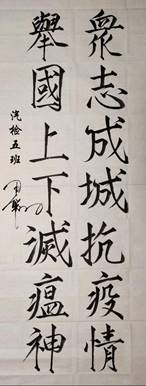 衆志成城抗疫情
舉國上下滅瘟神
汽檢五班